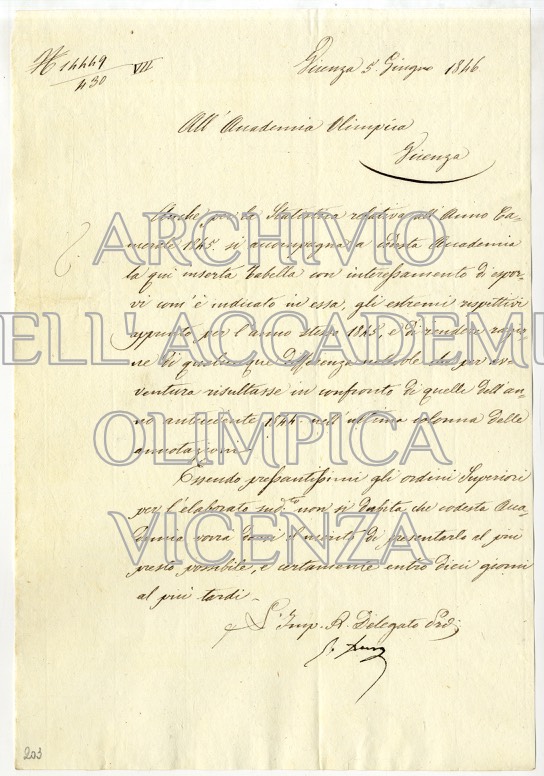 N 14449 VII
430
Vicenza 5 Giugno 1846
All' Accademia Olimpica
Vicenza
Anche per la Statistica relativa all' Anno Ca-
merale 1845 si accompagna a codesta Accademia
la qui inserta Tabella con interessamento di espor-
vi com' è indicato in essa, gli estremi rispettivi
appunto per l'anno stesso 1845, e di rendere ragio-
ne di qualunque differenza notabile che per av-
ventura risultasse in confronto di quelle dell' an-
no antecedente 1844 nell' ultima colonna delle
annotazioni.
Essendo pressantissimi gli ordini Superiori
per l'elaborato sud.to non si dubita che codesta Acca-
demia vorrà il merito di presentarlo al più
presto possibile, e certamente entro dieci giorni
al più tardi.
L' Imp. R. Delegato
203
ARCHIVIO
ELL' ACCADEM
OLIMPICA
VICENZA